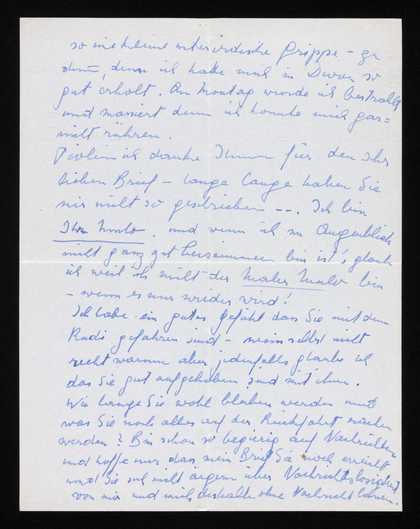 so eine kleine unterirdische Grippe – zu
dumm, denn ich hatte mich in Davos so
gut erholt. Am Montag wurde ich bestrahlt
und massiert denn ich konnte mich gar-
nicht rühren.
ich danke Ihnen für den Ihr
lieben Brief – lange lange haben Sie
mir nicht so geschrieben --- . Ich bin
Ihr und wenn ich im Augenblick
nicht ganz gut beisammen bin ist! glaub
ich weil ich nicht der bin
– wenn es nur wieder wird!
Ich habe ein gutes Gefühl das Sie mit dem
Rudi gefahren sind – weis selbst nicht
recht warum aber jedenfalls glaube ich
das Sie gut aufgehoben sind mit ihm.
Wie lange Sie wohl bleiben werden und
was Sie noch alles auf der Rückfahrt machen
werden? Bin schon so begierig auf Nachrichten
und hoffe nur das mein Brief Sie noch erreicht
und Sie sich nicht ärgern über Nachrichtslosigkeit
von mir und mich deshalb ohne Nachricht lassen.